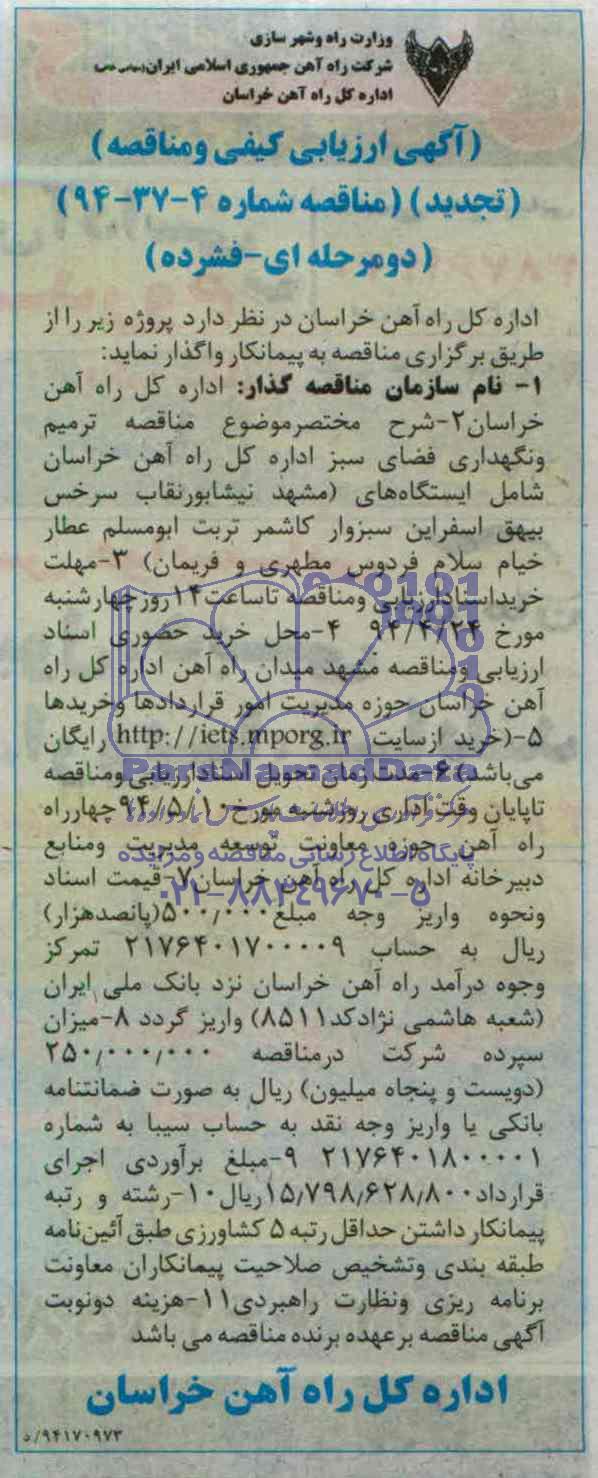 وزارت راه وشهر سازی
شرکت راه آهن جمهوری اسلامی ایران
اداره کل راه آهن خراسان
(آگهی ارزیابی کیفی ومناقصه)
(تجدید) (مناقصه شماره ۴-۳۷-۹۴)
(دومرحله ای-فشرده)
اداره کل راه آهن خراسان در نظر دارد پروژه زیر را از
طریق برگزاری مناقصه به پیمانکار واگذار نماید:
۱- نام سازمان مناقصه گذار: اداره کل راه آهن
خراسان۲-شرح مختصرموضوع مناقصه ترمیم
ونگهداری فضای سبز اداره کل راه آهن خراسان
شامل ایستگاه‌های (مشهد نیشابورنقاب سرخس
بیهق اسفراین سبزوار کاشمر تربت ابومسلم عطار
خیام سلام فردوس مطهری و فریمان) ۳-مهلت
خریداسنادارزیابی ومناقصه تاساعت۱۴روزچهارشنبه
مورخ ۹۴/۴/۲۴ ۴-محل خرید حضوری اسناد
ارزیابی ومناقصه مشهد میدان راه آهن اداره کل راه
آهن خراسان حوزه مدیریت امور قراردادها وخریدها
۵-(خرید ازسایت http://iets.mporg.ir رایگان
می‌باشد)۶-مدت زمان تحویل اسنادارزیابی ومناقصه
تاپایان وقت اداری روزشنبه مورخ ۹۴/۵/۱۰چهارراه
راه آهن حوزه معاونت توسعه مدیریت ومنابع
دبیرخانه اداره کل راه آهن خراسان۷-قیمت اسناد
ونحوه واریز وجه مبلغ۵۰۰/۰۰۰(پانصدهزار)
ریال به حساب ۲۱۷۶۴۰۱۷۰۰۰۰۹ تمرکز
وجوه درآمد راه آهن خراسان نزد بانک ملی ایران
(شعبه هاشمی نژادکد۸۵۱۱) واریز گردد ۸-میزان
سپرده شرکت درمناقصه ۲۵۰/۰۰۰/۰۰۰
(دویست و پنجاه میلیون) ریال به صورت ضمانتنامه
بانکی یا واریز وجه نقد به حساب سیبا به شماره
۲۱۷۶۴۰۱۸۰۰۰۰۱ ۹-مبلغ برآوردی اجرای
قرارداد۱۵/۷۹۸/۶۲۸/۸۰۰ریال۱۰-رشته و رتبه
پیمانکار داشتن حداقل رتبه ۵ کشاورزی طبق آئین‌نامه
طبقه بندی وتشخیص صلاحیت پیمانکاران معاونت
برنامه ریزی ونظارت راهبردی۱۱-هزینه دونوبت
آگهی مناقصه برعهده برنده مناقصه می باشد
اداره کل راه آهن خراسان
۹۴۱۷۰۹۷۳/ه
ParsNamadData
پایگاه اطلاع رسانی مناقصه و مزایده
۰۲۱-۸۸۳۴۹۶۷۰-۵